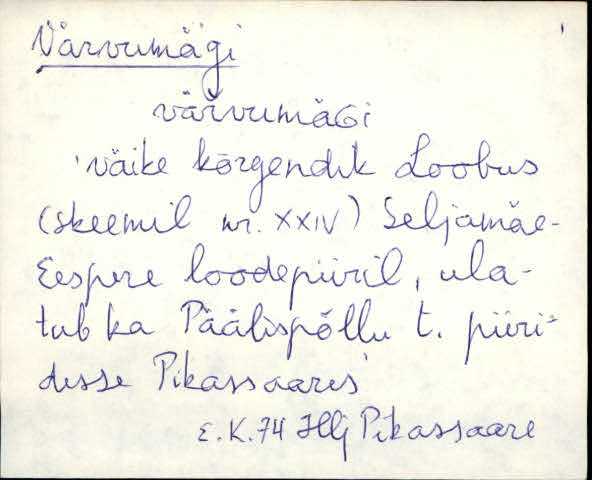 Värvumägi
värvumäGi
'väike kõrgendik Loobus
(skeemil nr. XXIV) Seljamäe-
Eespere loodepiiril, ula-
tub ka Päälispõllu t. piiri-
desse Pikassaares'
E.K. 74 Hlj Pikassaare